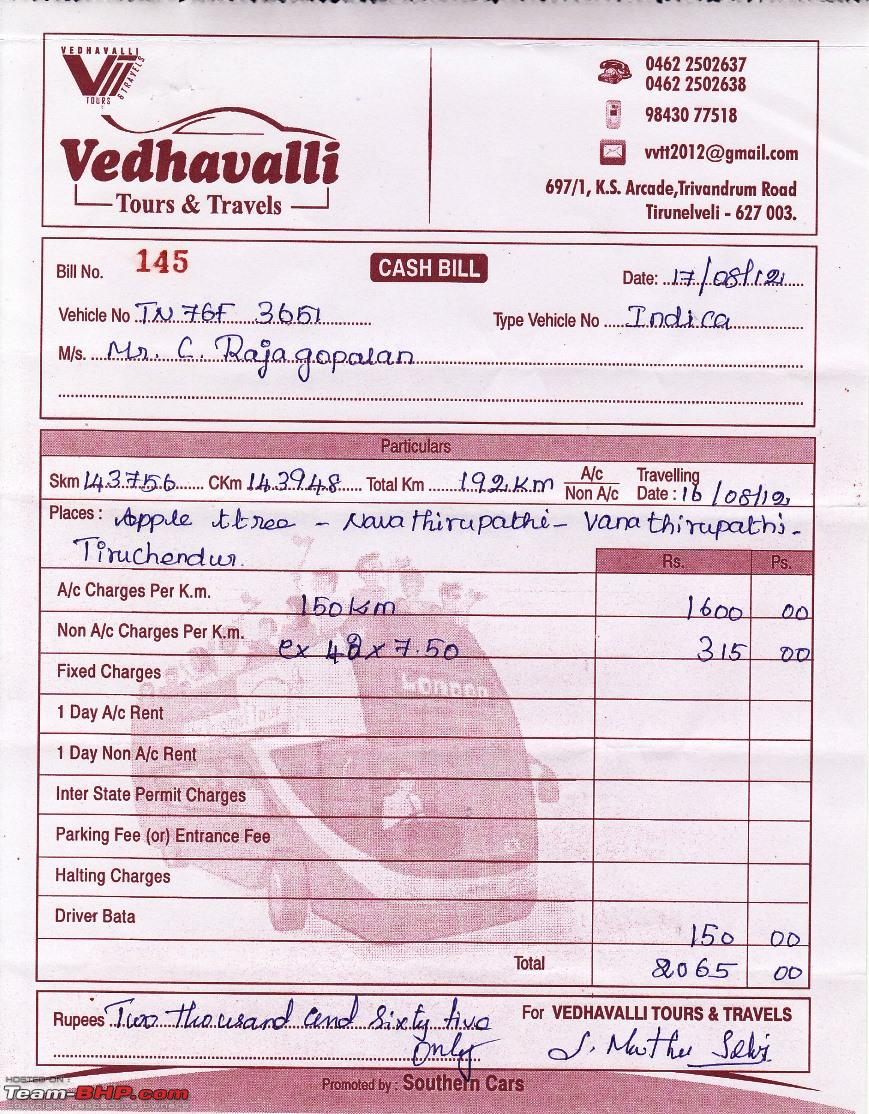 VEDHAVALLI
VTT
TOURS & TRAVELS
Vedhavalli
Tours & Travels
0462 2502637
0462 2502638
98430 77518
vvtt2012@gmail.com
697/1, K.S. Arcade,Trivandrum Road
Tirunelveli - 627 003.
Bill No. 145 CASH BILL Date: 17/08/12
Vehicle No TN 76F 3651 Type Vehicle No Indica
M/s. Mr. C. Rajagopalan
Particulars
Skm 143756 CKm 143948 Total Km 192 KM A/c Non A/c Travelling Date : 16/08/12
Places : Apple ttree - Navathirupathi - Vanathirupathi -
Tiruchendur.
Rs. Ps.
A/c Charges Per K.m. 150 Km 1600 00
Non A/c Charges Per K.m. ex 42 x 7.50 315 00
Fixed Charges
London
1 Day A/c Rent
1 Day Non A/c Rent
Inter State Permit Charges
Parking Fee (or) Entrance Fee
Halting Charges
Driver Bata 150 00
Total 2065 00
Rupees Two thousand and sixty five For VEDHAVALLI TOURS & TRAVELS
only J. Muthu Selvi
Promoted by : Southern Cars
HOSTED ON :
Team-BHP.com
copyright respective owners